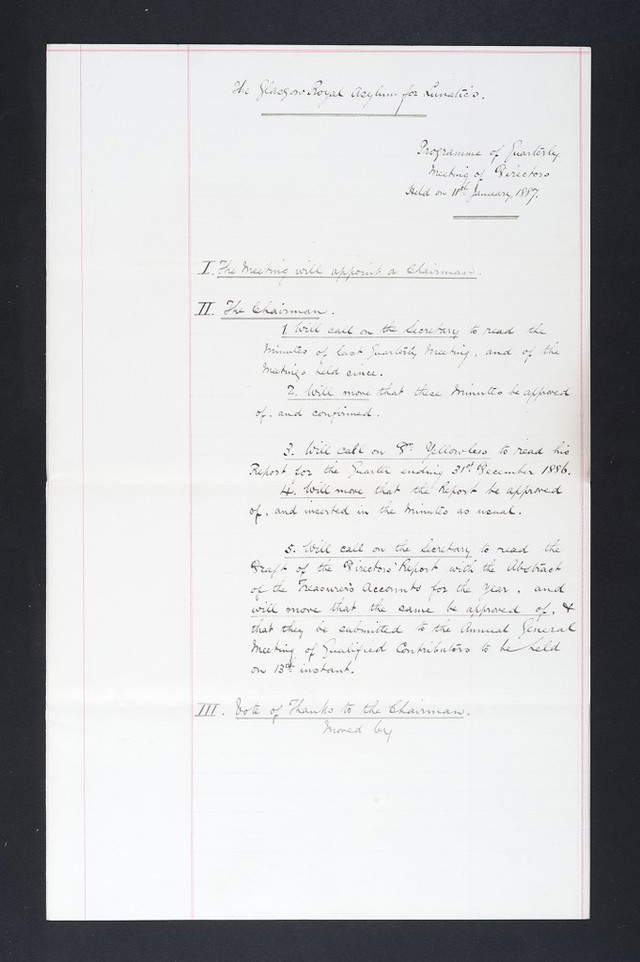 The Glasgow Royal Asylum for Lunatics.
Programme of Quarterly
Meeting of Directors
Held on 11th January, 1887.
I. The Meeting will appoint a Chairman.
II. The Chairman.
1. Will call on the Secretary to read the
Minutes of last Quarterly Meeting, and of the
Meetings held since.
2. Will move that these Minutes be approved
of, and confirmed.
3. Will call on Dr. Yellowlees to read his
Report for the Quarter ending 31st December 1886.
4. Will move that the Report be approved
of, and inserted in the Minutes as usual.
5. Will call on the Secretary to read the
Draft of the Directors' Report with the Abstract
of the Treasurer's Accounts for the Year, and
will move that the same be approved of, &
that they be submitted to the Annual General
Meeting of Qualified Contributors to be held
on 13th instant.
III. Vote of Thanks to the Chairman.
Moved by